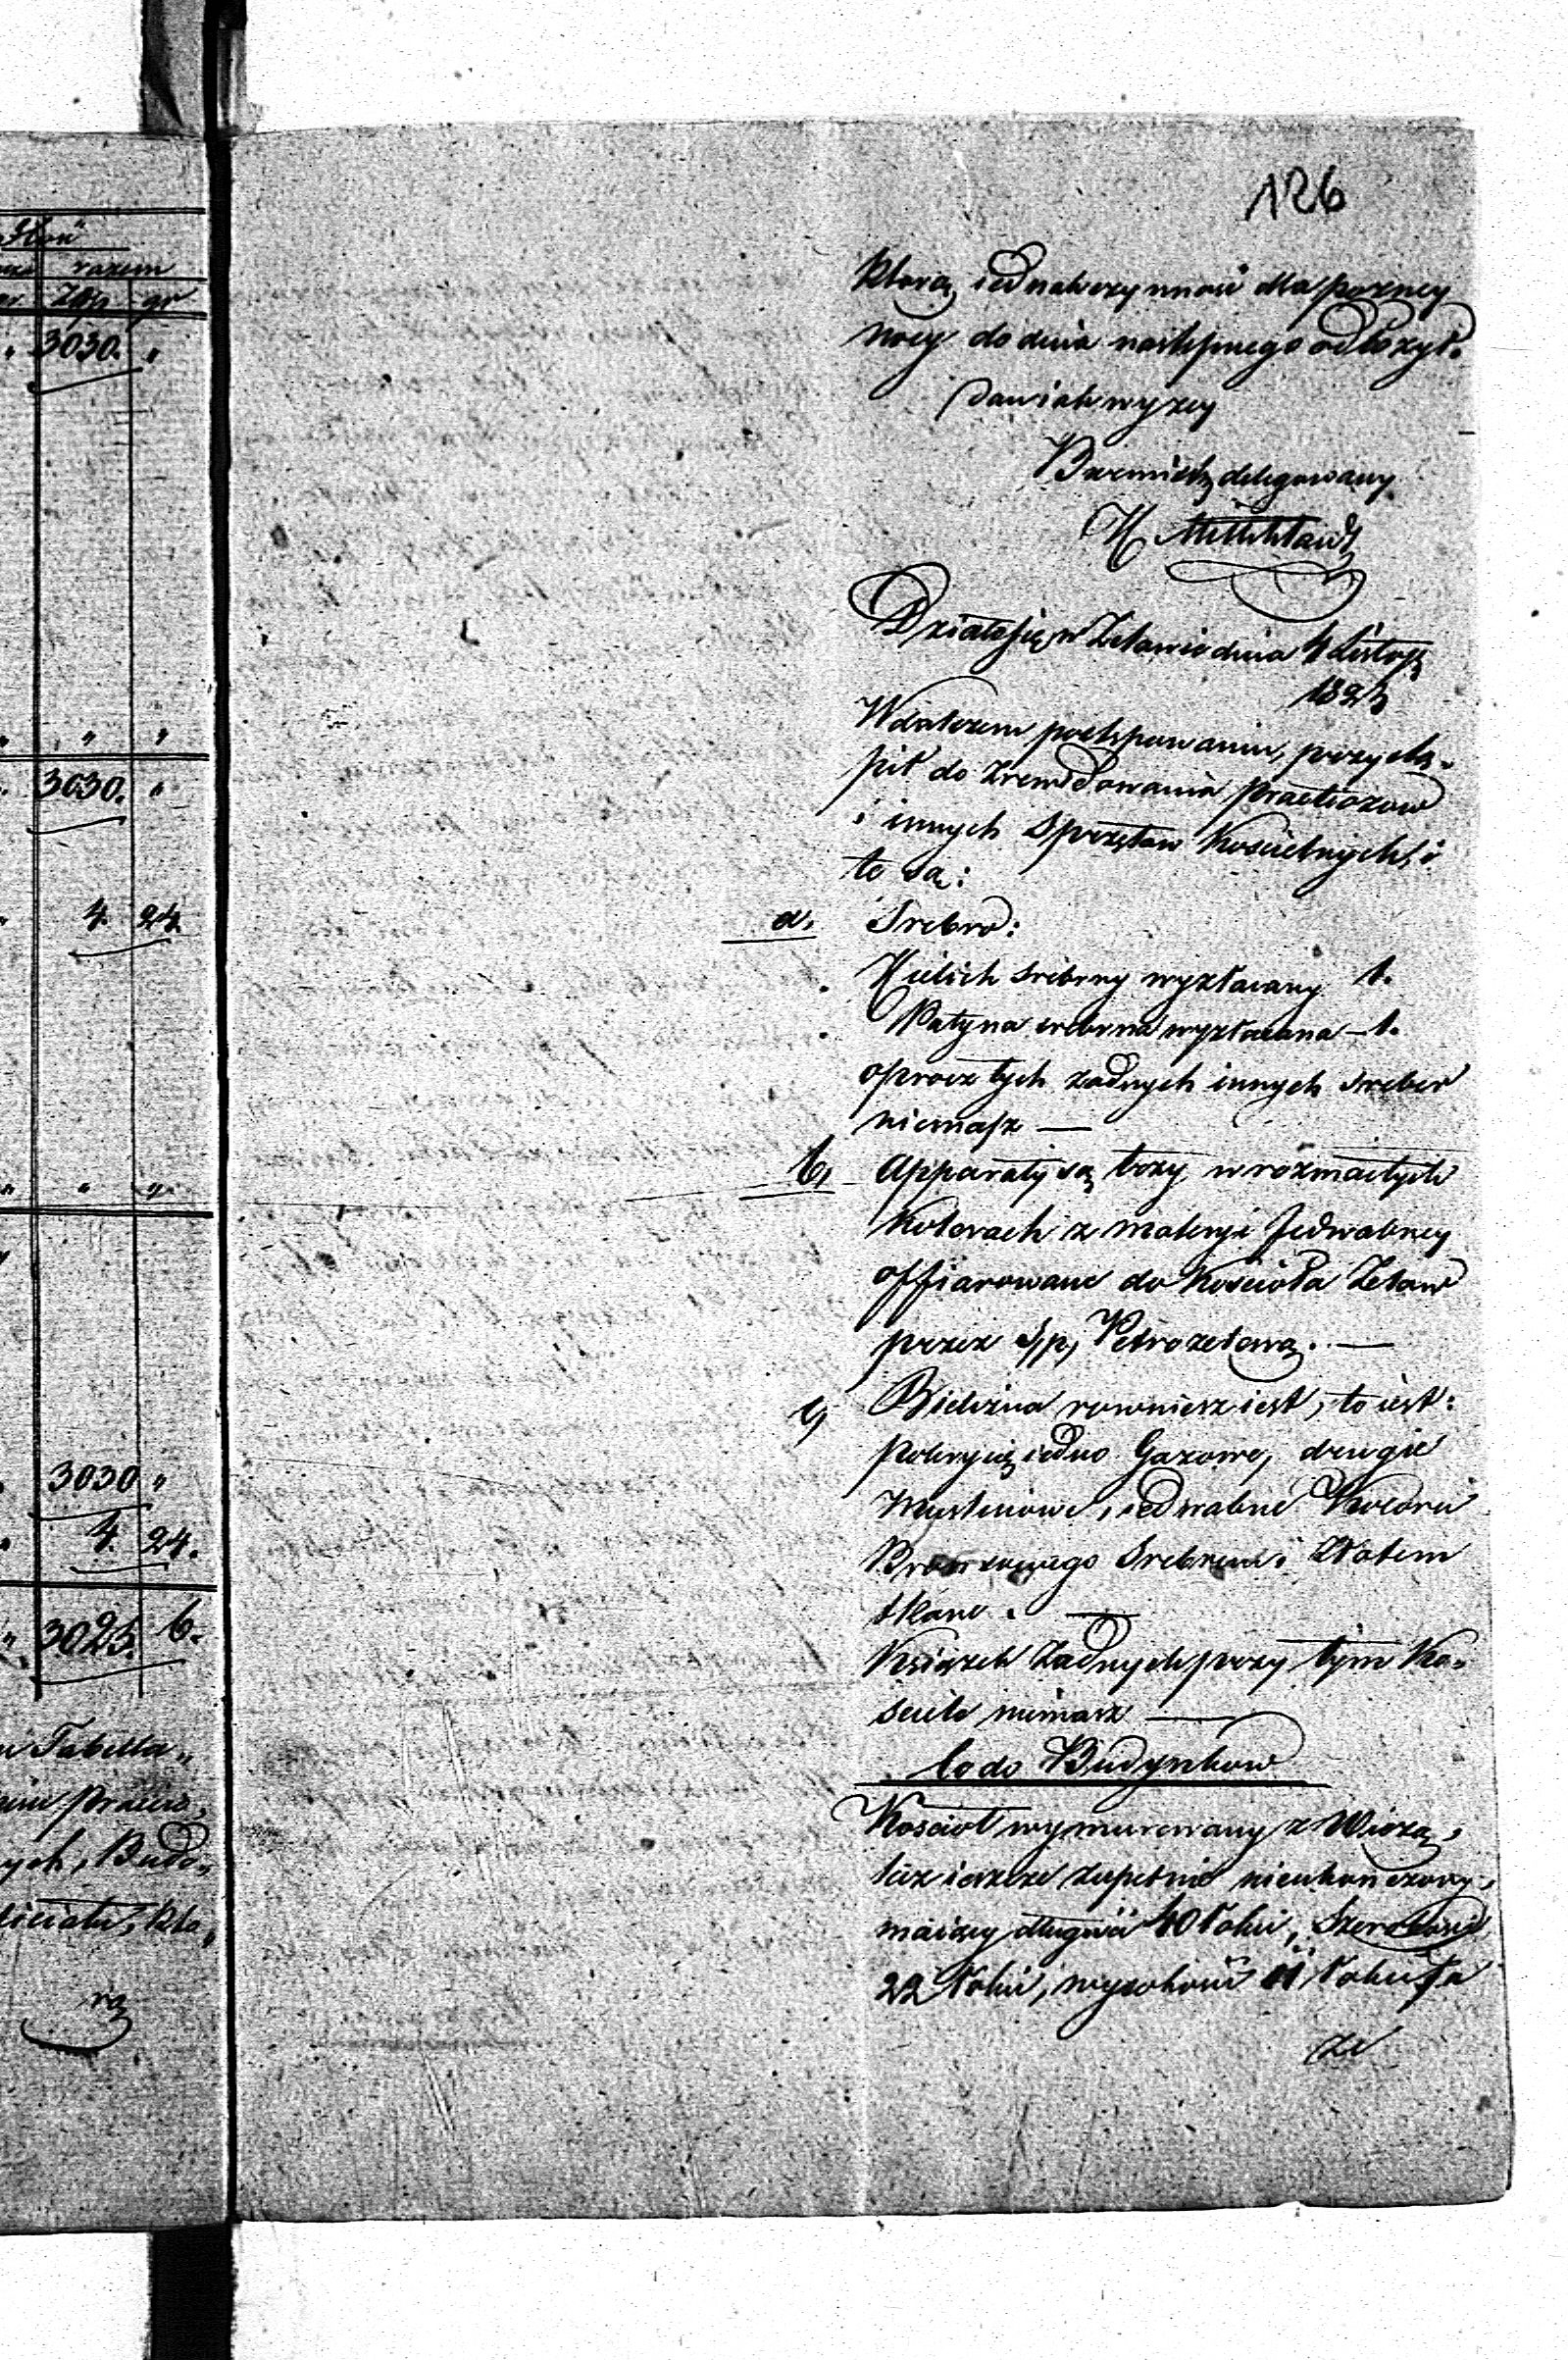 126
którą iednak czynność dla pozney
nocy do dnia nastepnego odłozył.
Dan iak wyzey
Burmistrz delegowany
Działo się w Zelowie dnia 4 Listop
182
W dalszem postępowaniu, przystą-
pił do zrewidowania
i innych Sprzętow Kościelnych, i
te są:
a, Srebro:
Kielich srebrny wyzłacany 1.
Patyna srebrna wyzłacana - 1.
oprocz tych zadnych innych sreber
niemasz —
b, Apparaty są trzy w rozmaitych
Kolorach z materyi Jedwabney
offiarowane do Kościoła Zelow
przez S, p,
c, Bielizna rowniesz iest, to iest:
pokrycie iedno Gazowe, drugie
Muslinowe, iedwabne Koloru
Bronzowego Srebrem i Złotem
tkane. —
Książek Zadnych przy tym Ko-
sciele niemasz —
Co do Budynkow
Kościoł wymurowany z Wiezą,
lecz ieszcze zupełnie nieukonczony,
maiący długości 40 łokci, Szerokości
22 łokci, wysokości 11 łokci, a
ze
razem
Złp gr
3030. "
" "
3030. "
4. 24.
" "
3030 "
4. 24.
3025. 6.
Tabella
ych, Budo„
rą